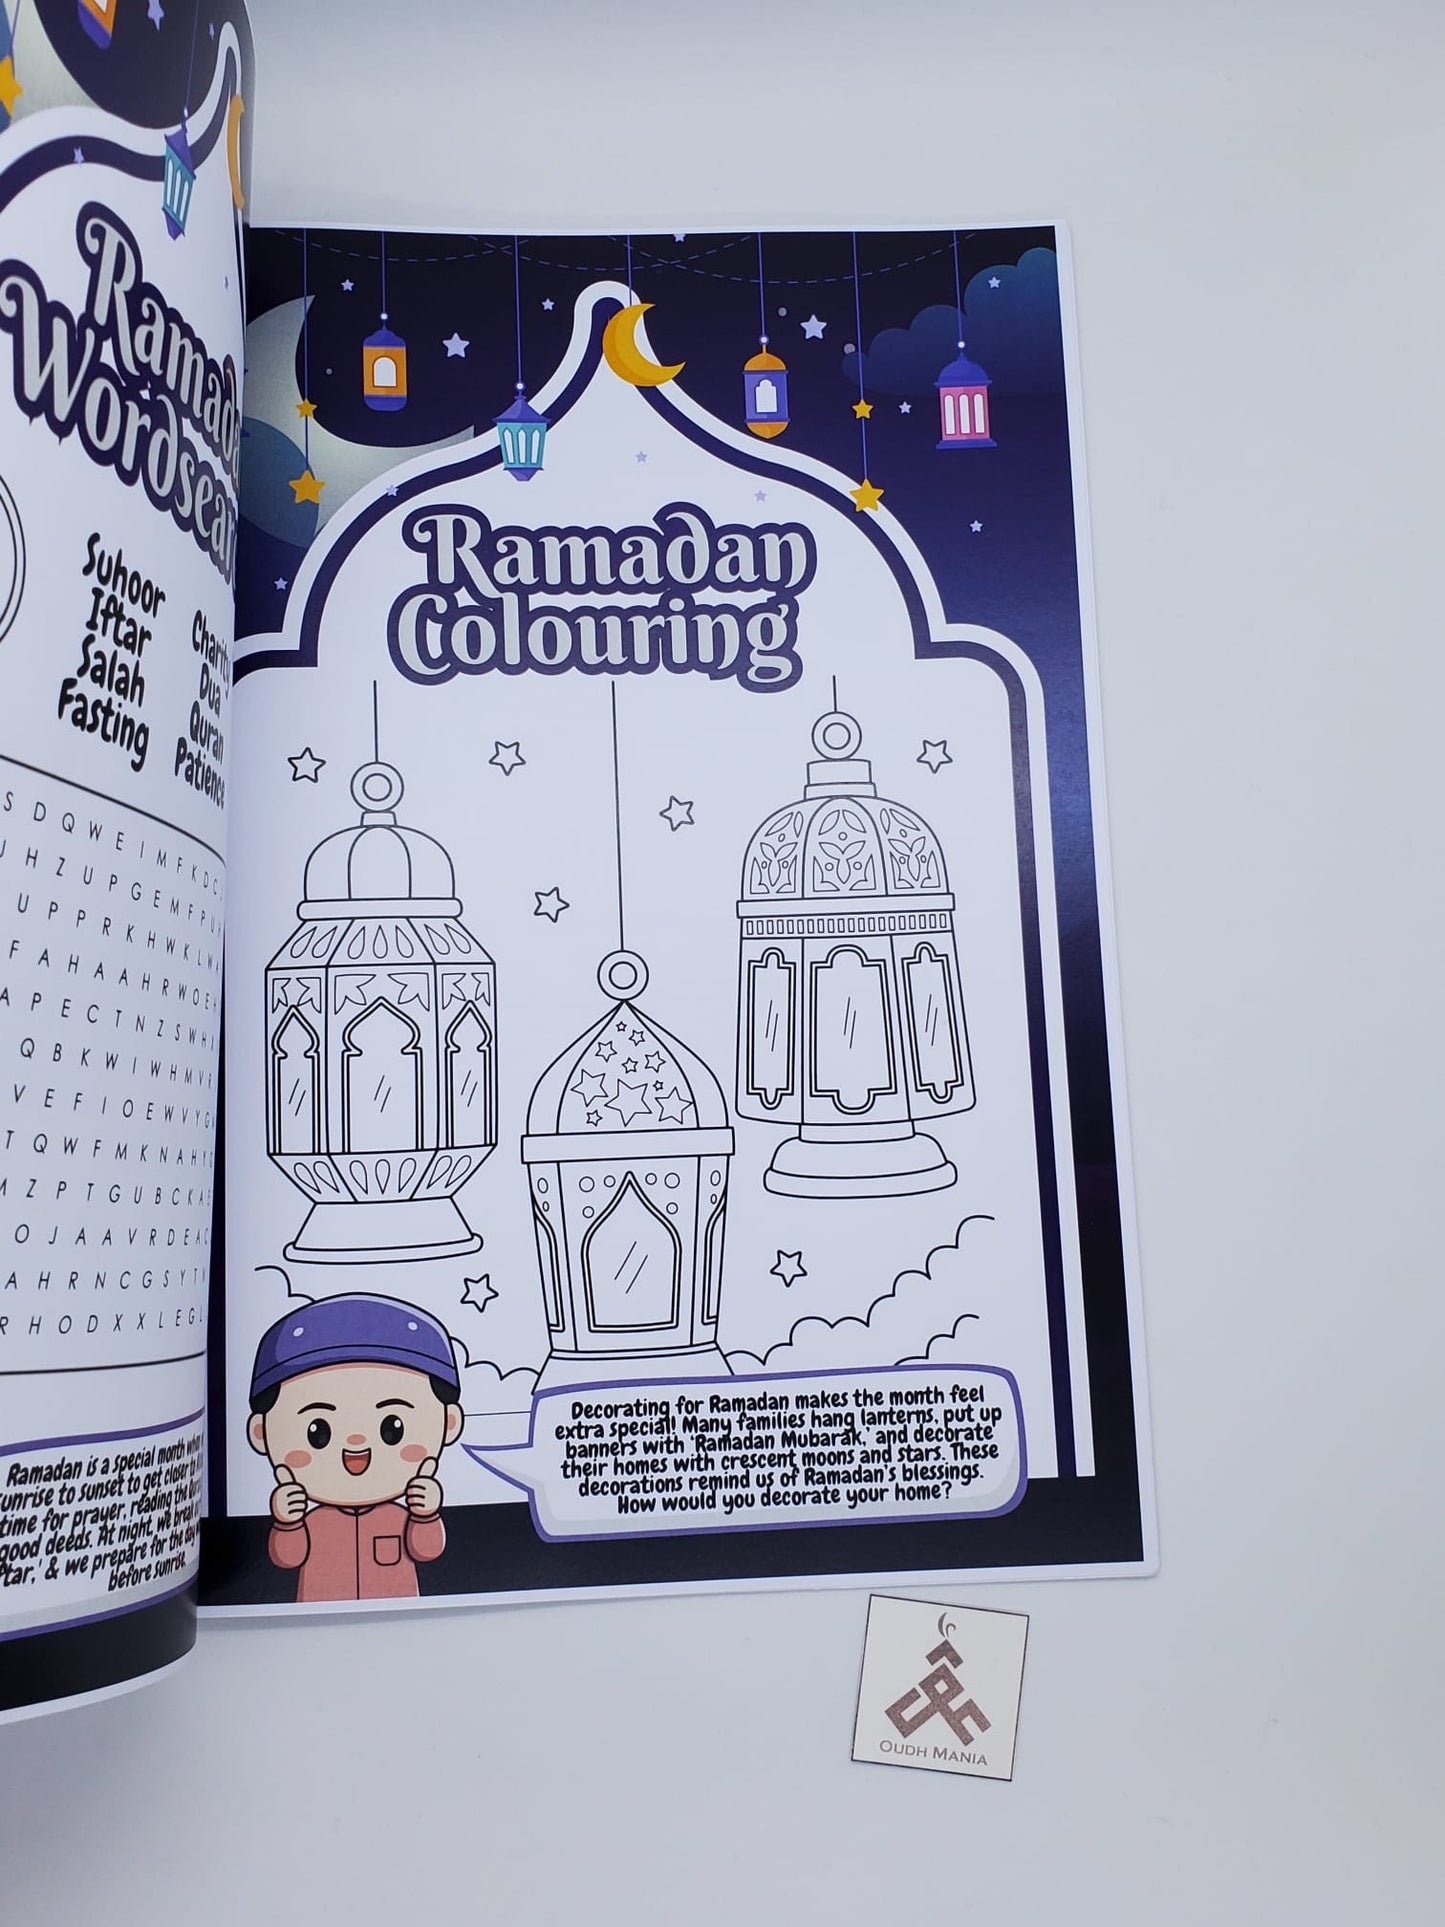 Ramada
Wordsear
Suhoor
Iftar
Salah
Fasting
Charity
Dua
Quran
Patience
S D Q W E I M F K D C
H Z U P G E M F P U
U P P R K H W K L W
F A H A A H R W O E
A P E C T N Z S W H
Q B K W I W H M V
V E F I O E W V Y G
T Q W F M K N A H Y
Z P T G U B C K A
O J A A V R D E A C
A H R N C G S Y T
R H O D X X L E G L
Ramadan is a special month when
unrise to sunset to get closer to
time for prayer, reading the
good deeds. At night, we break
ftar,' & we prepare for the day
before sunrise.
Ramadan
Colouring
Decorating for Ramadan makes the month feel
extra special! Many families hang lanterns, put up
banners with 'Ramadan Mubarak,' and decorate
their homes with crescent moons and stars. These
decorations remind us of Ramadan's blessings.
How would you decorate your home?
OUDH MANIA